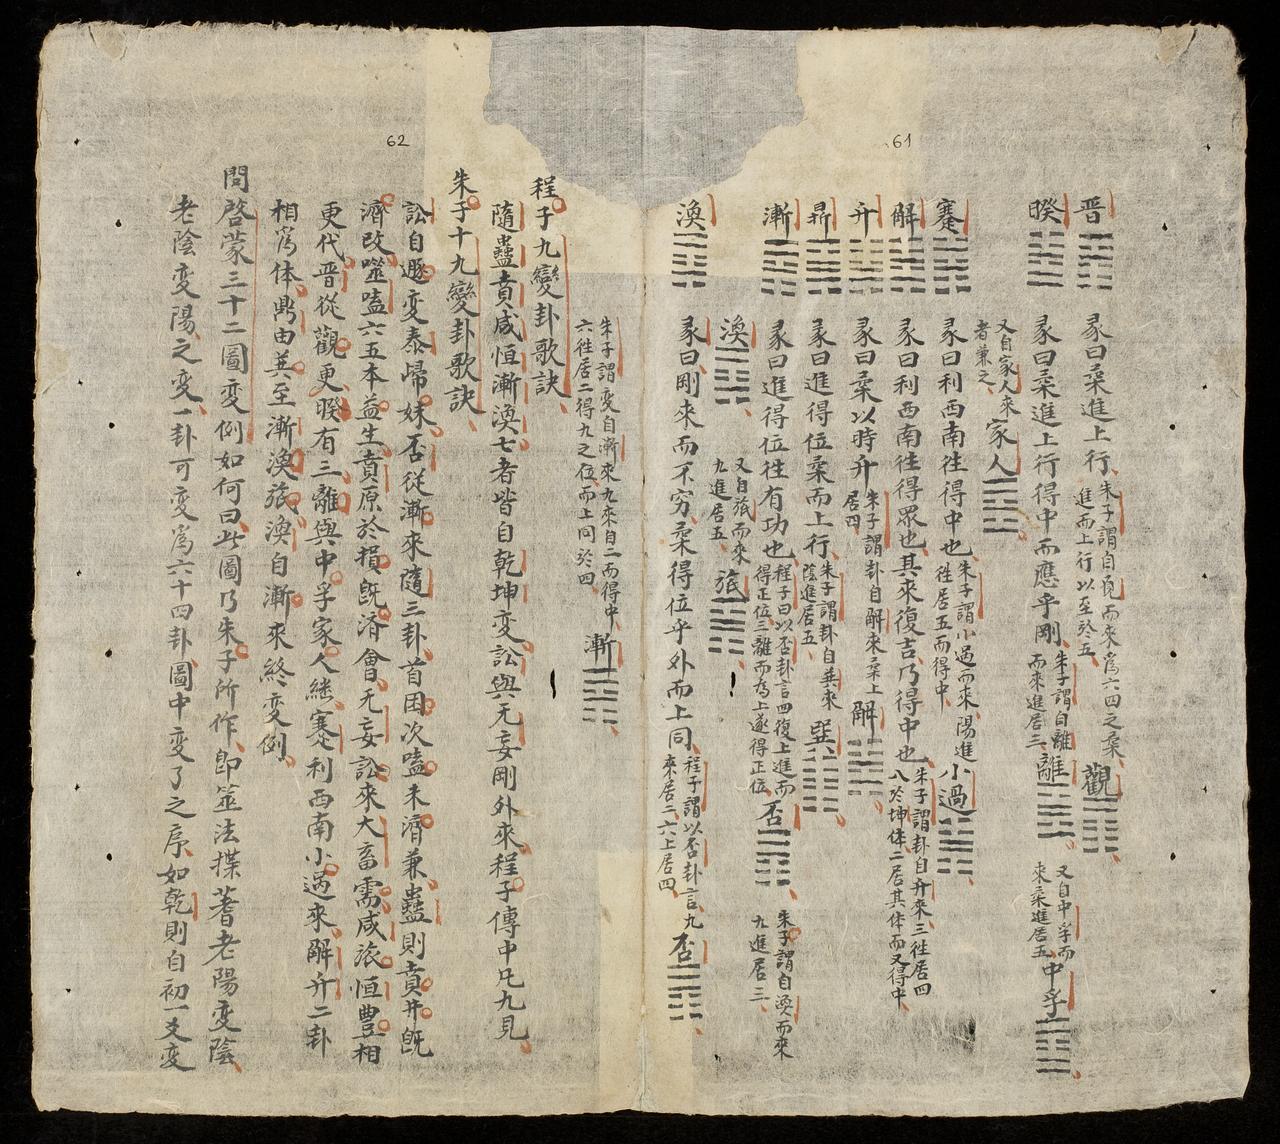 61
晋 彖曰柔進上行 朱子謂自觀而來為六四之柔進而上行以至於五 觀
睽 彖曰柔進上行得中而應乎剛 朱子謂自離而來進居三 離 又自中孚而來柔進居五 中孚
又自家人來者兼之 家人
蹇 彖曰利西南往得中也 朱子謂小過而來陽進往居五而得中 小過
解 彖曰利西南往得眾也其來復吉乃得中也 朱子謂卦自升來三往居四入於坤体二居其体而又得中
升 彖曰柔以時升 朱子謂卦自解來柔上居四 解
鼎 彖曰進得位柔而上行 朱子謂卦自巽來陰進居五 巽
漸 彖曰進得位往有功也 程子曰以否卦言四復上進而得正位三離而為上遂得正位 否 朱子謂自渙而來九進居三
渙 又自旅而來九進居五 旅
渙 彖曰剛來而不穷柔得位乎外而上同 程子謂以否卦言九來居二六上居四 否
朱子謂变自漸來九來自二而得中六往居二得九之位而上同於四 漸
62
程子九變卦歌訣
隨蠱賁咸恒漸渙七者皆自乾坤变訟與无妄剛外來程子傳中凡九見
朱子十九變卦歌訣
訟自遯变泰歸妹否從漸來隨三卦首困次嗑未濟兼蠱則賁井既
濟改噬嗑六五本益生賁原於損既济會无妄訟來大畜需咸旅恒豊相
更代晋從觀更睽有三離與中孚家人継蹇利西南小過來解升二卦
相為体鼎由巽至漸渙旅渙自漸來終变例
問啓蒙三十二圖变例如何曰此圖乃朱子所作即筮法揲蓍老陽变陰
老陰变陽之变一卦可变為六十四卦圖中变了之序如乾則自初一爻变